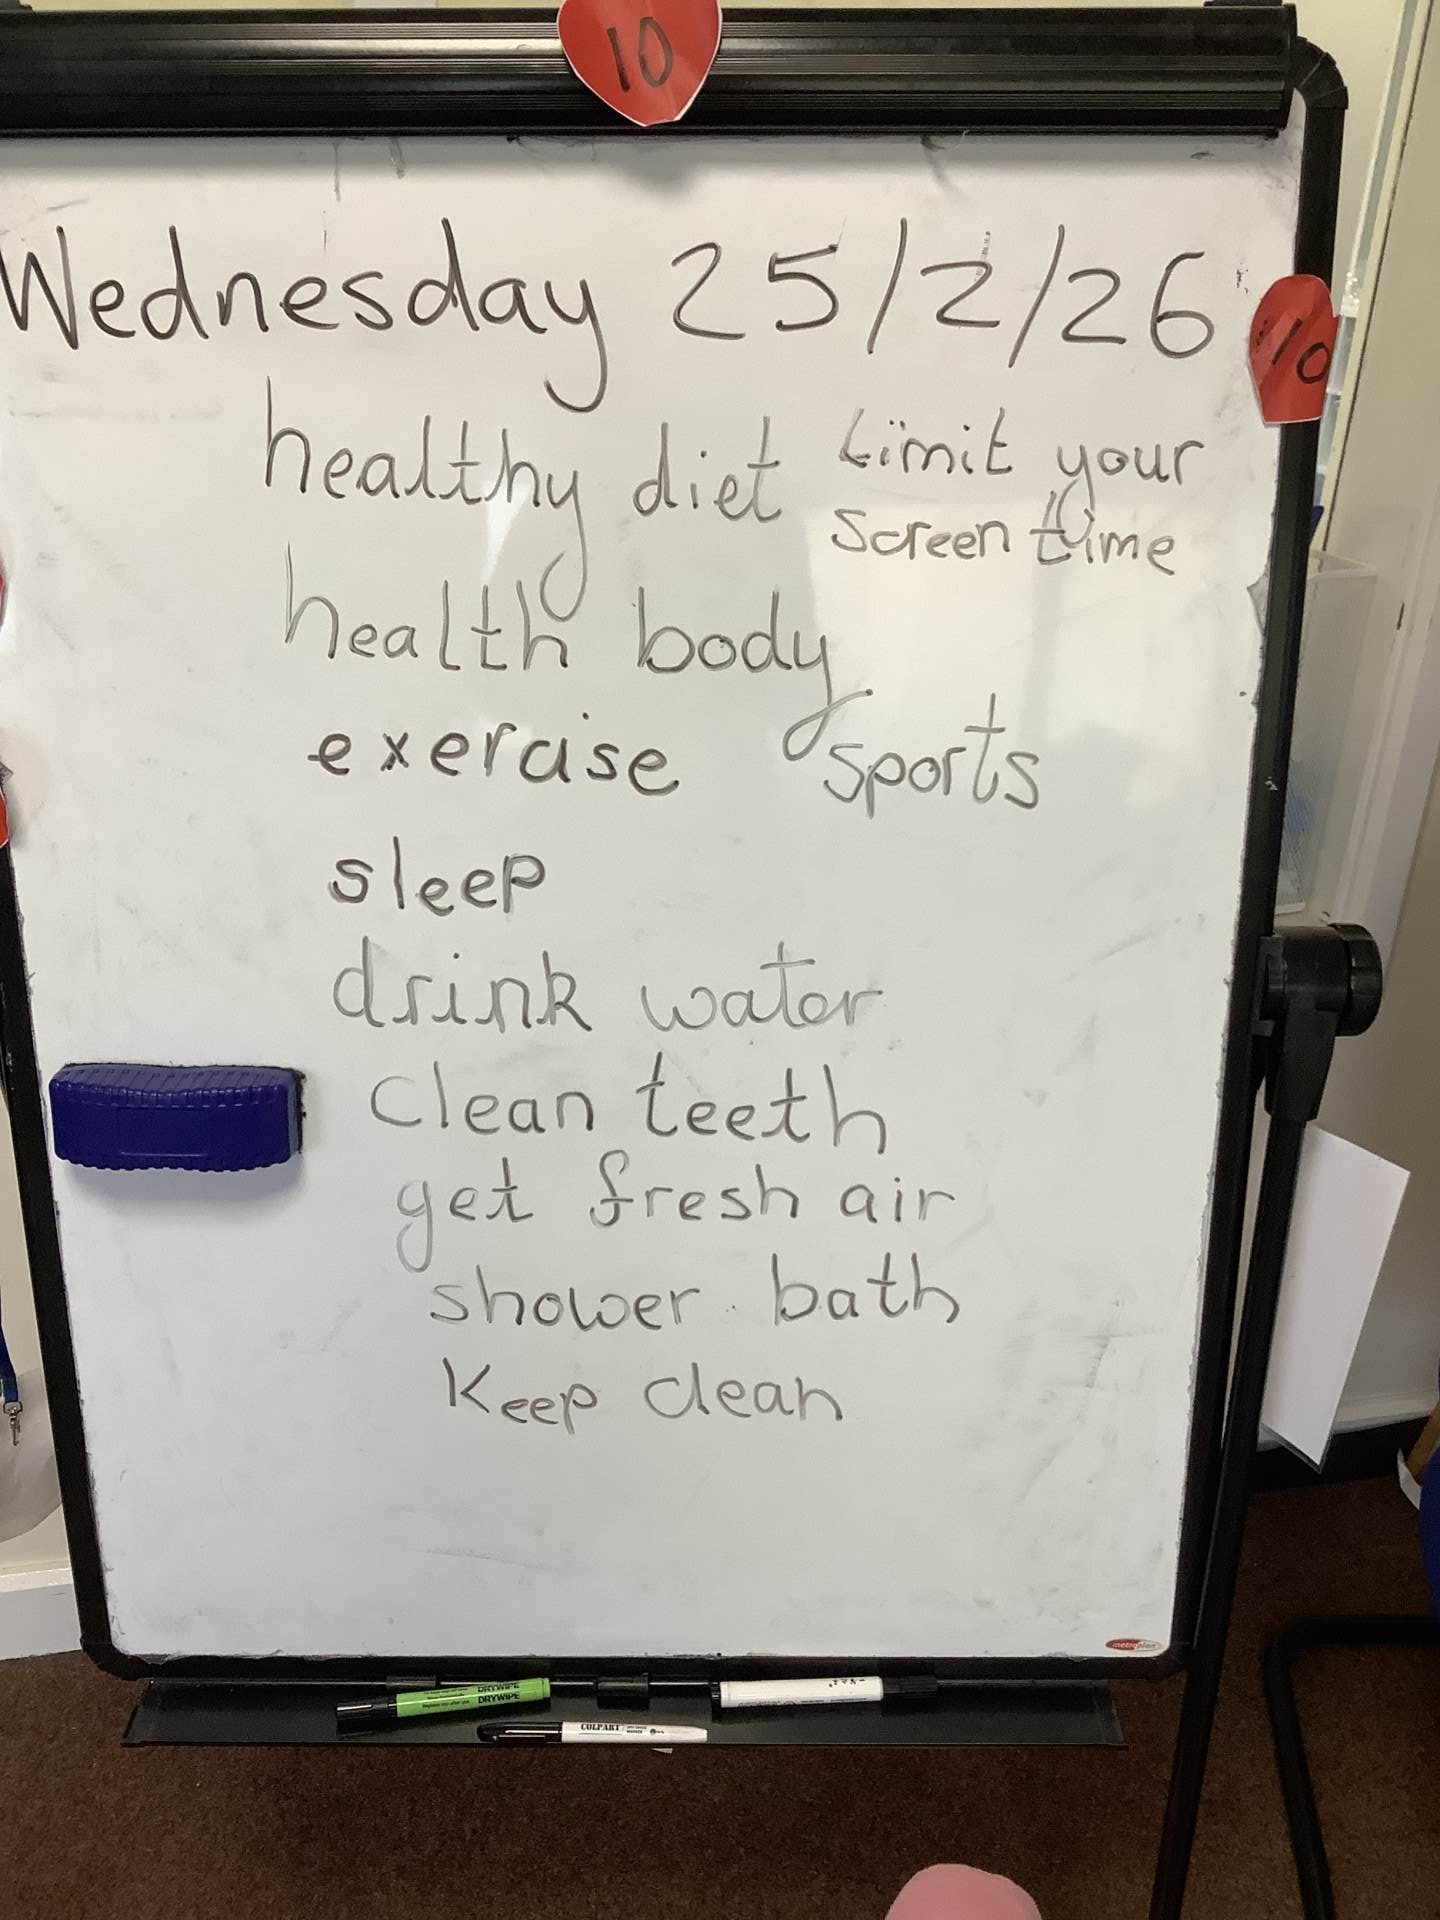 10
Wednesday 25/2/26
10
healthy diet Limit your
screen time
health body
exercise sports
sleep
drink water
clean teeth
get fresh air
shower bath
Keep clean
metroplan
DRYWIPE
DRYWIPE
COLPART